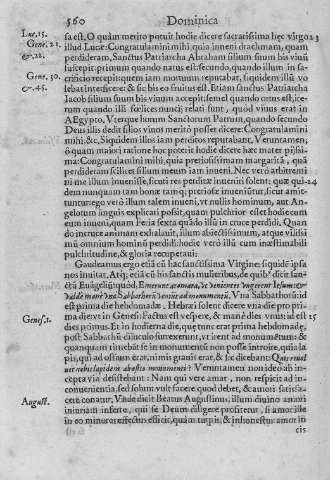 560 Dominica
Luc. 15. sa est. O quàm merito potuit hodie dicere sacratissima hęc virgo 23
Gene. 21. illud Lucæ: Congratulamini mihi, quia inueni drachmam, quam
& 22. perdideram, Sanctus Patriarcha Abraham filium suum bis viuũ
suscepit: primum quando natus est: secundo, quando illum in sa-
Gene. 30. crificio recepit: quem iam mortuum reputabat, siquidem illũ vo
& 45. lebat interficere: & sic bis eo fruitus est. Etiam sanctus Patriarcha
Iacob filium suum bis viuum accepit: semel quando ortus est, ite-
rum quando illi felices nuncij relati sunt, quòd viuus erat in
AEgypto, Vterque horum Sanctorum Patrum, quando secundo
Deus illis dedit filios viuos meritò posset dicere: Congratulamini
mihi, &c, Siquidem illis iam perditos reputabant, Veruntamen,
ò quam maiori ratione hoc poterit hodie dicere hæc mater pijssi-
ma: Congratulamini mihi, quia pretiosissimam margaritã, quã
perdideram scilicet filium meum iam inueni. Nec verò arbitremi
ni me illum inuenisse, sicuti res perditæ inueniri solent: quæ qui- 24
dem nunquam tam bonæ tamq; pretiosæ inueniũtur, sicut amit-
tuntur: ego verò illum talem inueni, vt nullis hominum, aut An-
gelorum linguis explicari possit, quam pulchrior est et hodie cum
eum inueni, quam Feria sexta quãdo illũ in cruce perdidi. Quan
do in cruce animam exhalauit, illum abiectissimum, atque vilissi
mũ omnium hominũ perdidi: hodie verò illũ cum inæstimabili
pulchritudine, & gloria recuperaui.
Gaudeamus ergo etiã cũ hac sanctissima Virgine: siquidẽ ipsa
nos inuitat. Atq; etiã cũ his sanctis mulieribus, de quib. dicit san-
ctũ Euãgeliũ quòd,
valdè manè vna Sabbatorũ veniũt ad monumentũ. Vna Sabbathorũ id
est prima die hebdomadæ. Hebræi solent dicere vna die pro pri-
Genes. 1. ma: dixit in Genesi: Factus est vespere, & manè dies vnus: id est 25
dies primus. Et in hodierna die, quę tunc erat prima hebdomadę,
post Sabbathũ diluculo surrexerunt, vt irent ad monumẽtum: &
quanquam sciuebãt se in monumentũ non posse introire, quia la
pis, qui ad ostium erat, nimis grauis erat, & sic dicebant: Quis reuol
uet nobis lapidem ab ostio monumenti? Veruntamen non ideo ab in-
cepta via destiterunt: Nam qui vere amat, non respicit ad in-
conuenientia, sed solum vult facere quod debet, & amori satisfa-
August. cere conatur. Vnde dicit Beatus Augustinus, illum diuino amori
iniuriam inferre, qui se Deum diligere profitetur, si amor ille
in eo minores effectus efficit, quàm turpis, & inhonestus amor in
eis